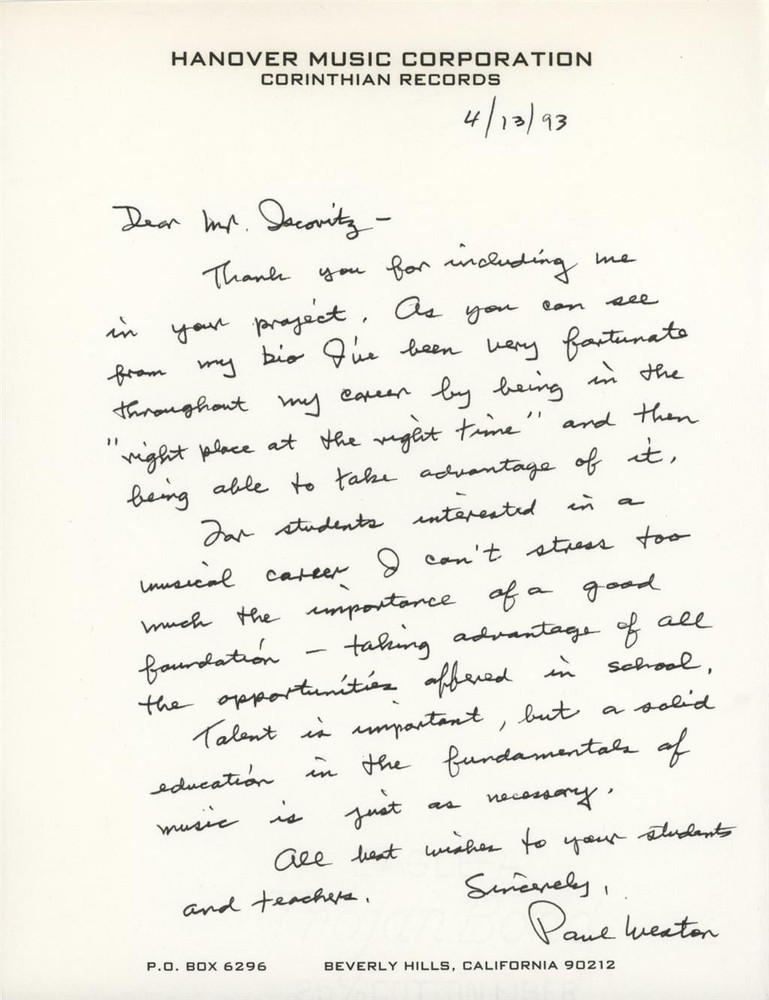 HANOVER MUSIC CORPORATION
CORINTHIAN RECORDS
4/13/93
Dear Mr. Iscovitz –
Thank you for including me
in your project. As you can see
from my bio I've been very fortunate
throughout my career by being in the
"right place at the right time" and then
being able to take advantage of it.
For students interested in a
musical career I can't stress too
much the importance of a good
foundation – taking advantage of all
the opportunities offered in school.
Talent is important, but a solid
education in the fundamentals of
music is just as necessary.
All best wishes to your students
and teachers.
Sincerely,
Paul Weston
P.O. BOX 6296 BEVERLY HILLS, CALIFORNIA 90212